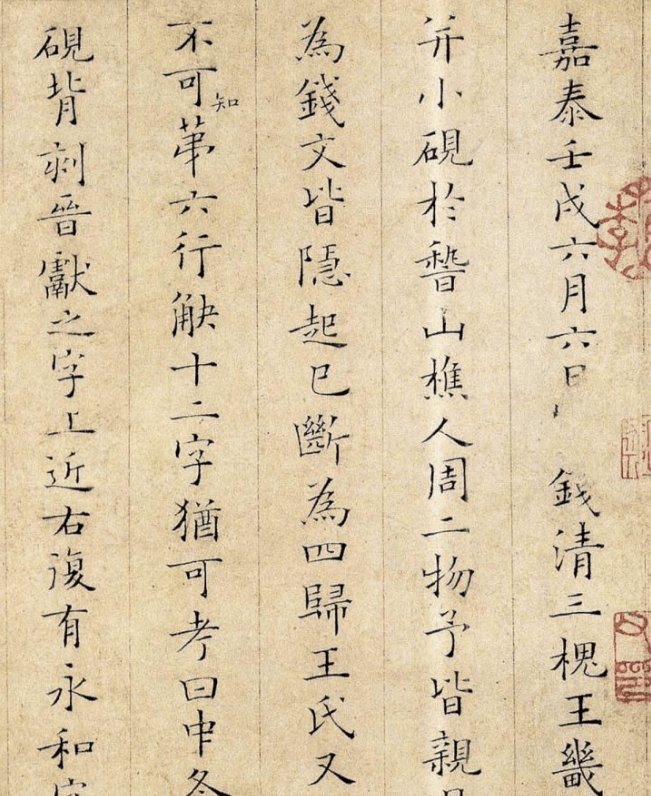 嘉泰壬戌六月六日錢清三槐王畿
并小硯於嵇山樵人周二物予皆親
為錢文皆隱起已斷為四歸王氏又
不可知第六行觖十二字猶可考曰中冬
硯背刻晉獻之字上近右復有永和字